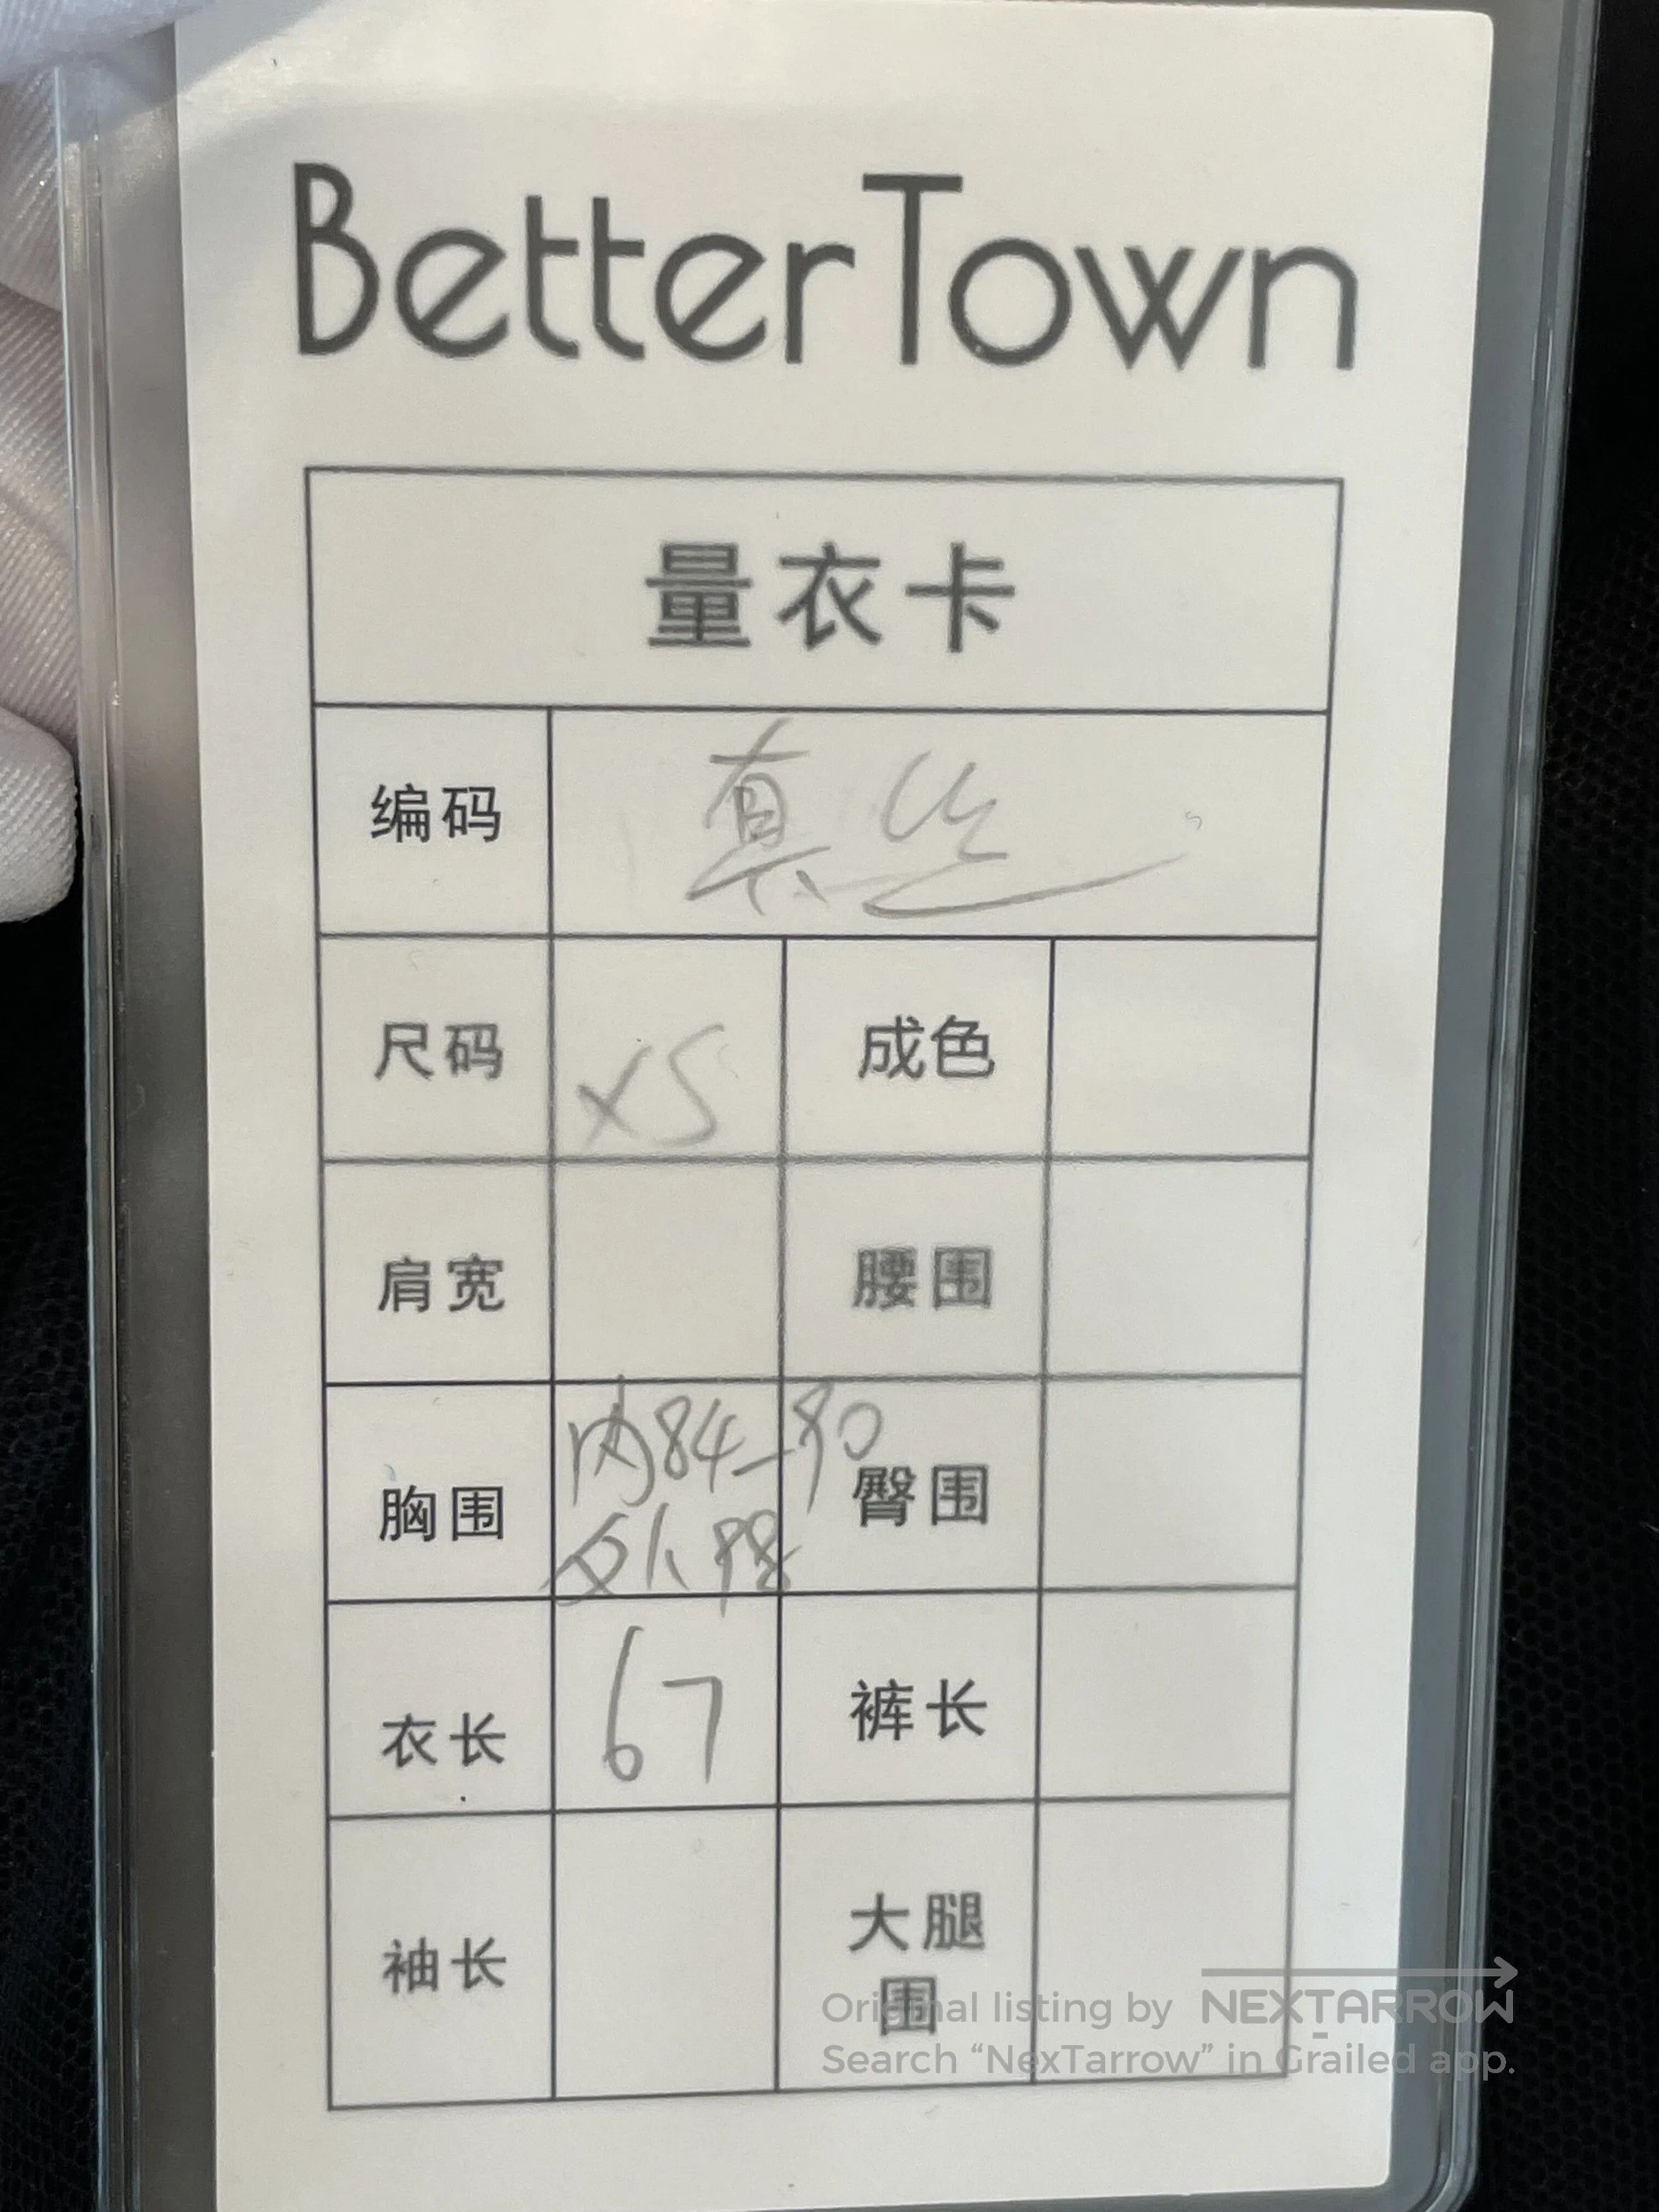 BetterTown
量衣卡
编码 真丝
尺码 XS 成色
肩宽 腰围
胸围 内84-90
外98 臀围
衣长 67 裤长
袖长 大腿
围
Original listing by NEXTARROW
Search “NexTarrow” in Grailed app.